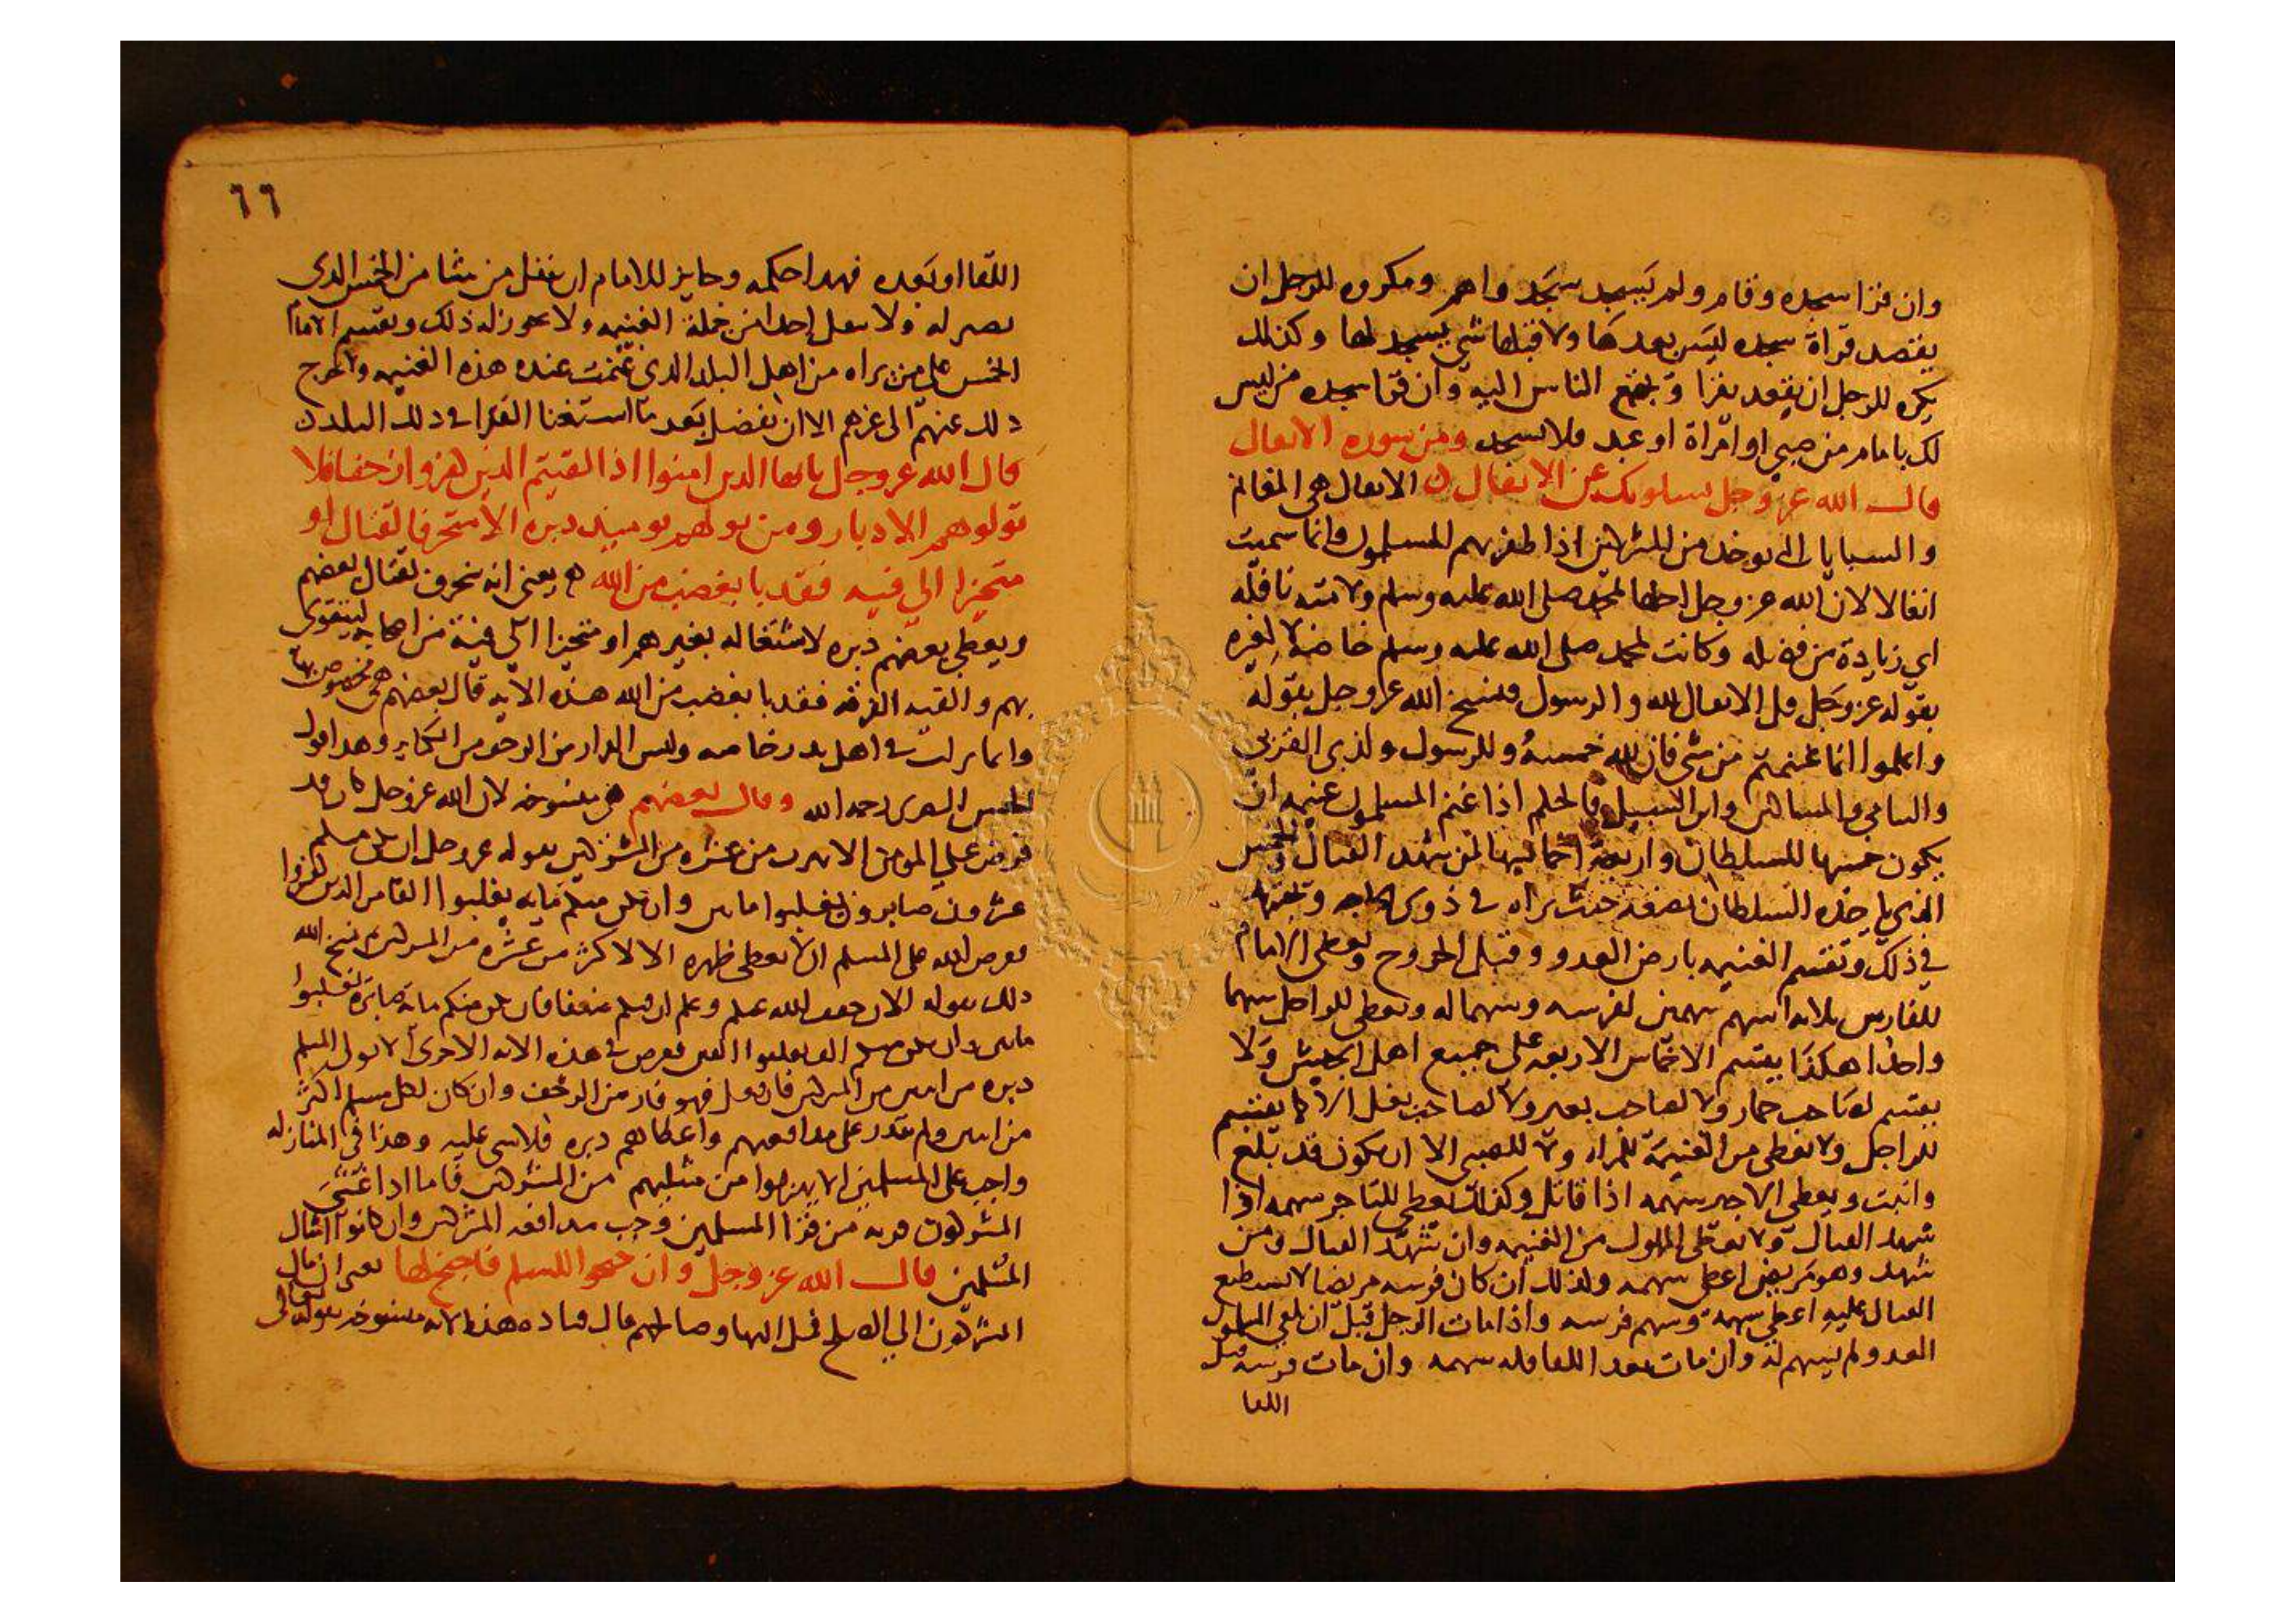 وان قرا سجده وقام ولم يسجد سجد واهم ومكروه للرجل ان
يقصد قراة سجده ليس بعدها ولا قبلها شي يسجد لها وكذلك
يكره للرجل ان يقعد يقرا وتجتمع الناس اليه وان قرا سجده من ليس
لك بامام من صبي او امراة او عبد فلا تسجد ومن سورة الانفال
قال الله عز وجل يسلونك عن الانفال الانفال هي المغانم
والسبايا التي توخذ من المشركين اذا ظفر بهم المسلمون وانما سميت
انفالا لان الله عز وجل احلها لمحمد صلى الله عليه وسلم ولامته نافله
اي زيادة من فضله وكانت لمحمد صلى الله عليه وسلم خاصة لا لغيره
بقوله عز وجل قل الانفال لله والرسول فنسخ الله عز وجل بقوله
واعلموا انما غنمتم من شي فان لله خمسه وللرسول ولذي القربى
واليتامى والمساكين وابن السبيل فالحكم اذا غنم المسلمون غنيمه ان
يكون خمسها للسلطان واربعة اخماسها لمن شهد القتال والخمس
الذي ياخذه السلطان يصرفه حيث يراه في ذوي الحاجه ويجتهد
في ذلك وتقسم الغنيمه بارض العدو وقبل الخروج ويعطي الامام
للفارس ثلاثه اسهم سهمين لفرسه وسهما له ويعطي للراجل سهما
واحدا هكذا يقسم الاخماس الاربعه على جميع اهل الجيش ولا
يقسم لصاحب حمار ولا لصاحب بعير ولا لصاحب بغل الا كما يقسم
للراجل ولا يعطى من الغنيمة للمراه ولا للصبي الا ان يكون قد بلغ
وانبت ويعطى الاجير سهمه اذا قاتل وكذلك يعطى للتاجر سهمه اذا
شهد القتال ولا يعطى المملوك من الغنيمه وان شهد القتال ومن
شهد وهو مريض اعطي سهمه وكذلك ان كان فرسه مريضا لا يستطيع
القتال عليه اعطي سهمه وسهم فرسه واذا مات الرجل قبل ان يلقى المسلمون
العدو لم يسهم له وان مات بعد اللقا فله سهمه وان مات فرسه قبل
اللقا
٦٦
اللقا او بعده فهذا حكمه وجايز للامام ان ينفل من يشا من الخمس الذي
يصير له ولا ينفل احدا من جملة الغنيمه ولا يجوز له ذلك ويقسم الامام
الخمس على من يراه من اهل البلد الذي غنمت عنده هذه الغنيمه ولا يخرج
ذلك عنهم الى غيرهم الا ان يفضل بعد ما استغنا الفقرا في ذلك البلد
قال الله عز وجل يا ايها الذين امنوا اذا لقيتم الذين كفروا زحفا فلا
تولوهم الادبار ومن يولهم يوميذ دبره الا متحرفا لقتال او
متحيزا الى فئه فقد با بغضب من الله يعني انه ينحرف لقتال بعضهم
ويعطي بعضهم دبره لاشتغاله بغيرهم او متحيزا الى فئة من اصحابه ليتقوى
بهم والفيه الفرقه فقد با بغضب من الله هذه الايه قال بعضهم هي مخصوص بها
وانما نزلت في اهل بدر خاصه وليس الفرار من الزحف من الكباير وهذا قول
الحسن البصري رحمه الله وقال بعضهم هي منسوخه لان الله عز وجل كان قد
فرض على المومن الا يهرب من عشره من المشركين بقوله عز وجل ان يكن منكم
عشرون صابرون يغلبوا ماتين وان يكن منكم مايه يغلبوا الفا من الذين كفروا
ففرض الله على المسلم الا يعطي ظهره الا لاكثر من عشره من المشركين فنسخ الله
ذلك بقوله الان خفف الله عنكم وعلم ان فيكم ضعفا فان يكن منكم ماية صابرة يغلبوا
ماتين وان يكن منكم الف يغلبوا الفين ففرض في هذه الايه الاخرى الا يولي المسلم
دبره من اثنين من المشركين فان فعل فهو فار من الزحف وان كان لكل مسلم اكثر
من اثنين ولم يقدر على مدافعتهم واعطاهم دبره فلا شي عليه وهذا في المنازله
واجب على المسلمين الا ينهزموا من مثليهم من المشركين فاما اذا غشي
المشركون قريه من قرا المسلمين وجب مدافعه المشركين وان كانوا امثال
المسلمين قال الله عز وجل وان جنحوا للسلم فاجنح لها يعني ان مال
المشركون الى الصلح فمل اليها وصالحهم قال قتاده هذه الايه منسوخه بقوله تعالى